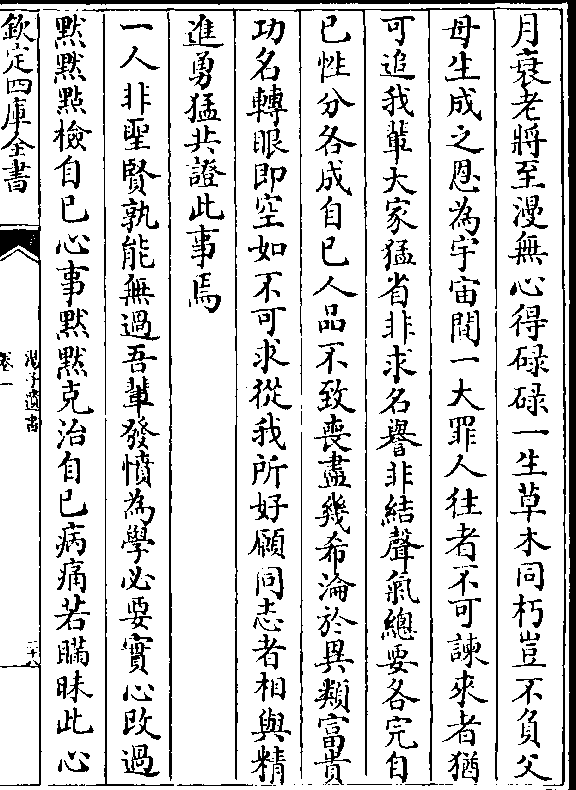 月衰老將至漫無心得碌碌一生草木同朽豈不負父
母生成之恩為宇宙間一大罪人往者不可諫來者猶
可追我輩大家猛省非求名譽非結聲氣總要各完自
己性分各成自己人品不致喪盡幾希淪於異類富貴
功名轉眼即空如不可求從我所好願同志者相與精
進勇猛共證此事焉
一人非聖賢孰能無過吾輩發憤為學必要實心改過
默默點檢自己心事默默克治自己病痛若瞞昧此心
欽定四庫全書
湯子遺書
卷一